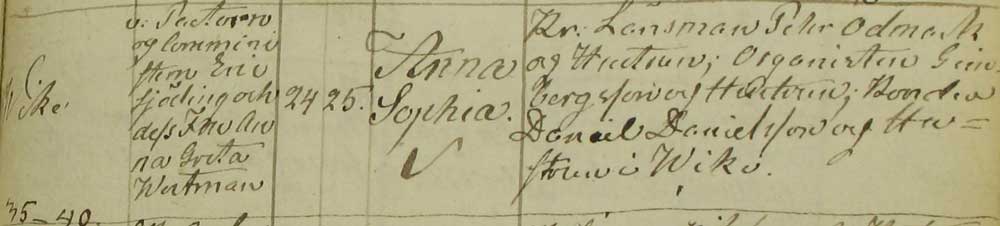 Wike
v: Pastoren
og Commini
stern Eric
Sjöding och
dess Fru An
na Greta
Wertman
24 25.
Anna
Sophia.
Kr. Länsman Pehr Odmark
og Hustrun; Organisten Grin
bergsson og Hustrun; Bonden
Daniel Danielsson og Hu=
strun i Wike.
35-40.